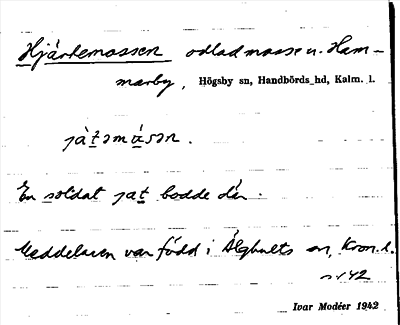 Hjärtemossen odlad mosse u. Ham-
marby, Högsby sn, Handbörds hd, Kalm. l.
En soldat jat bodde där.
Meddelaren var född i Älghults sn, Kron. l.
Ivar Modéer 1942